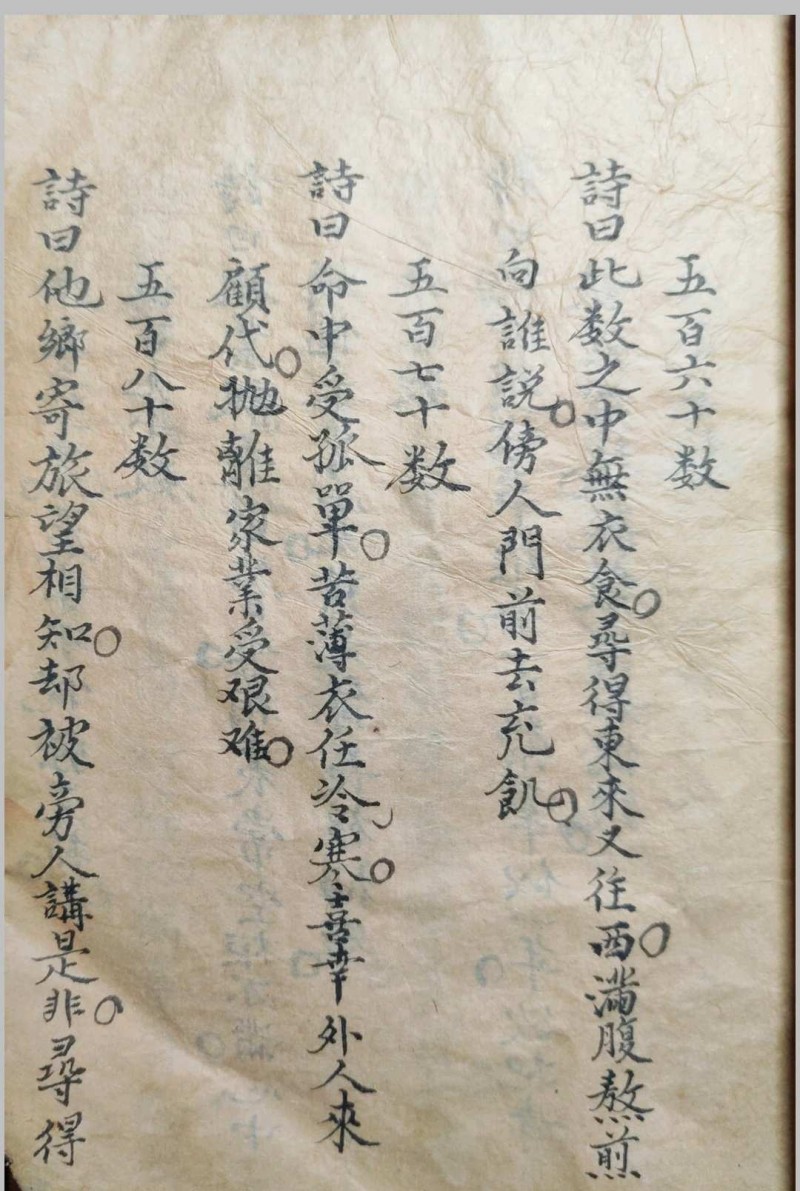 五百六十数
詩曰此数之中無衣食尋得東來又往西滿腹熬煎
向誰説傍人門前去充飢
五百七十数
詩曰命中受孤單苦薄衣任冷寒喜幸外人來
顧代拋離家業受艰难
五百八十数
詩曰他鄉寄旅望相知却被旁人講是非尋得